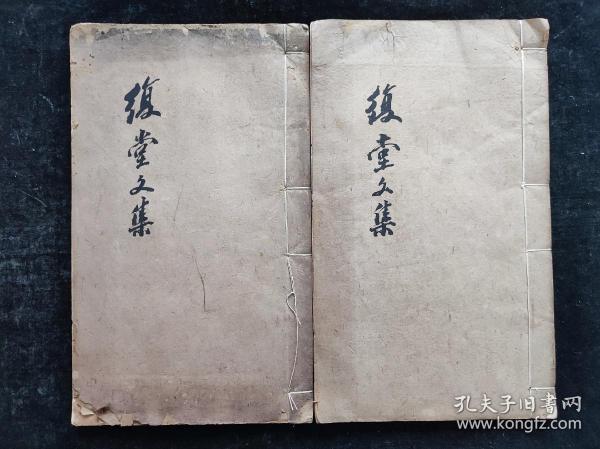 復堂文集
復堂文集
孔夫子旧书网
www.kongfz.com